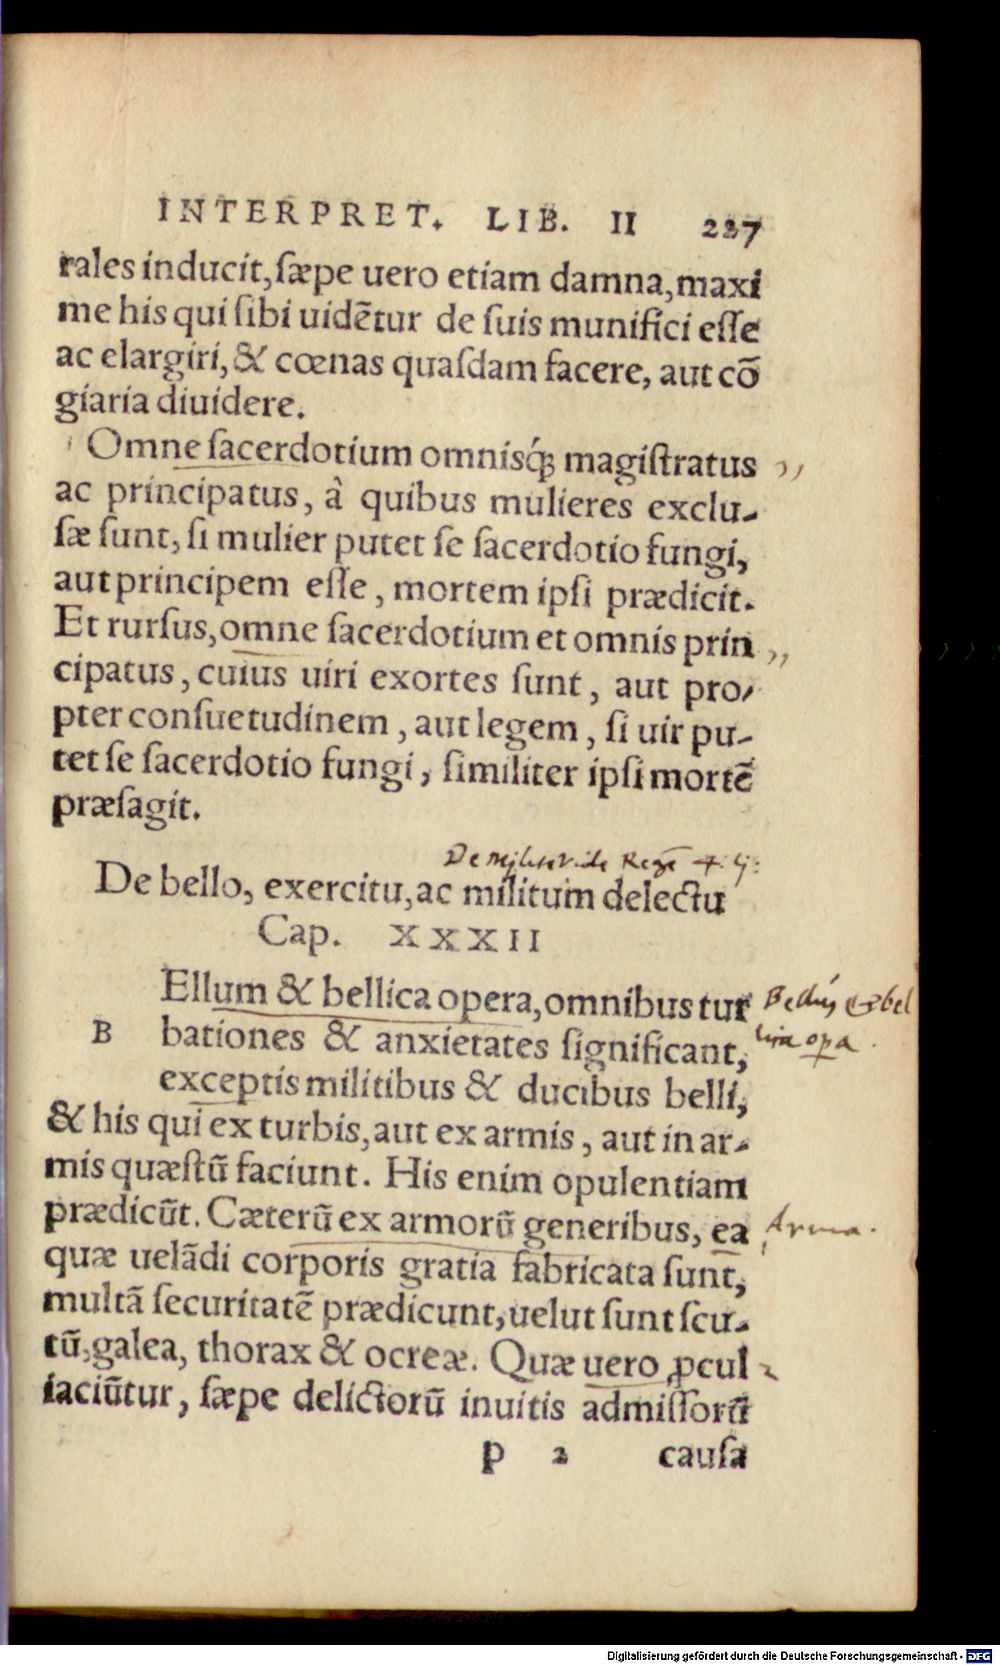 INTERPRET. LIB. II 227
rales inducit, ſæpe uero etiam damna, maxi
me his qui ſibi uidẽtur de ſuis munifici eſſe
ac elargiri, & cœnas quaſdam facere, aut cõ
giaria diuidere.
Omne ſacerdotium omniſq́; magiſtratus
ac principatus, à quibus mulieres exclu-
ſæ ſunt, ſi mulier putet ſe ſacerdotio fungi,
aut principem eſſe, mortem ipſi prædicit.
Et rurſus, omne ſacerdotium et omnis prin
cipatus, cuius uiri exortes ſunt, aut pro-
pter conſuetudinem, aut legem, ſi uir pu-
tet ſe ſacerdotio fungi, ſimiliter ipſi mortẽ
præſagit.
De Regẽ 4.
De bello, exercitu, ac militum delectu
Cap. XXXII
Ellum & bellica opera, omnibus tur
B bationes & anxietates ſignificant,
exceptis militibus & ducibus belli,
& his qui ex turbis, aut ex armis, aut in ar-
mis quæſtũ faciunt. His enim opulentiam
prædicũt. Cæterũ ex armorũ generibus, ea
quæ uelãdi corporis gratia fabricata ſunt,
multã ſecuritatẽ prædicunt, uelut ſunt ſcu-
tũ, galea, thorax & ocreæ. Quæ uero ꝓcul
iaciũtur, ſæpe delictorũ inuitis admiſſorũ
p 2 cauſa
& bel
lica opa
Arma.
Digitalisierung gefördert durch die Deutsche Forschungsgemeinschaft - DFG